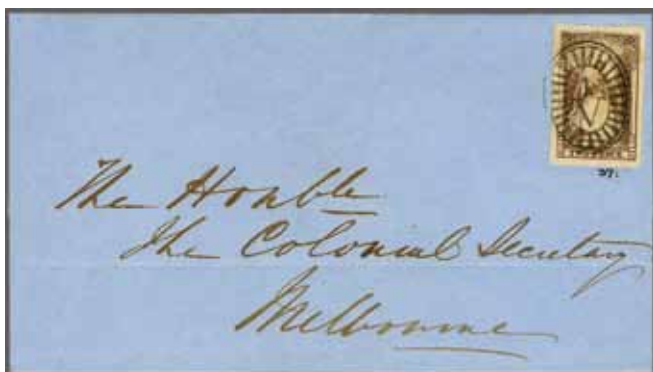 The Honble
The Colonial Secretary
Melbourne